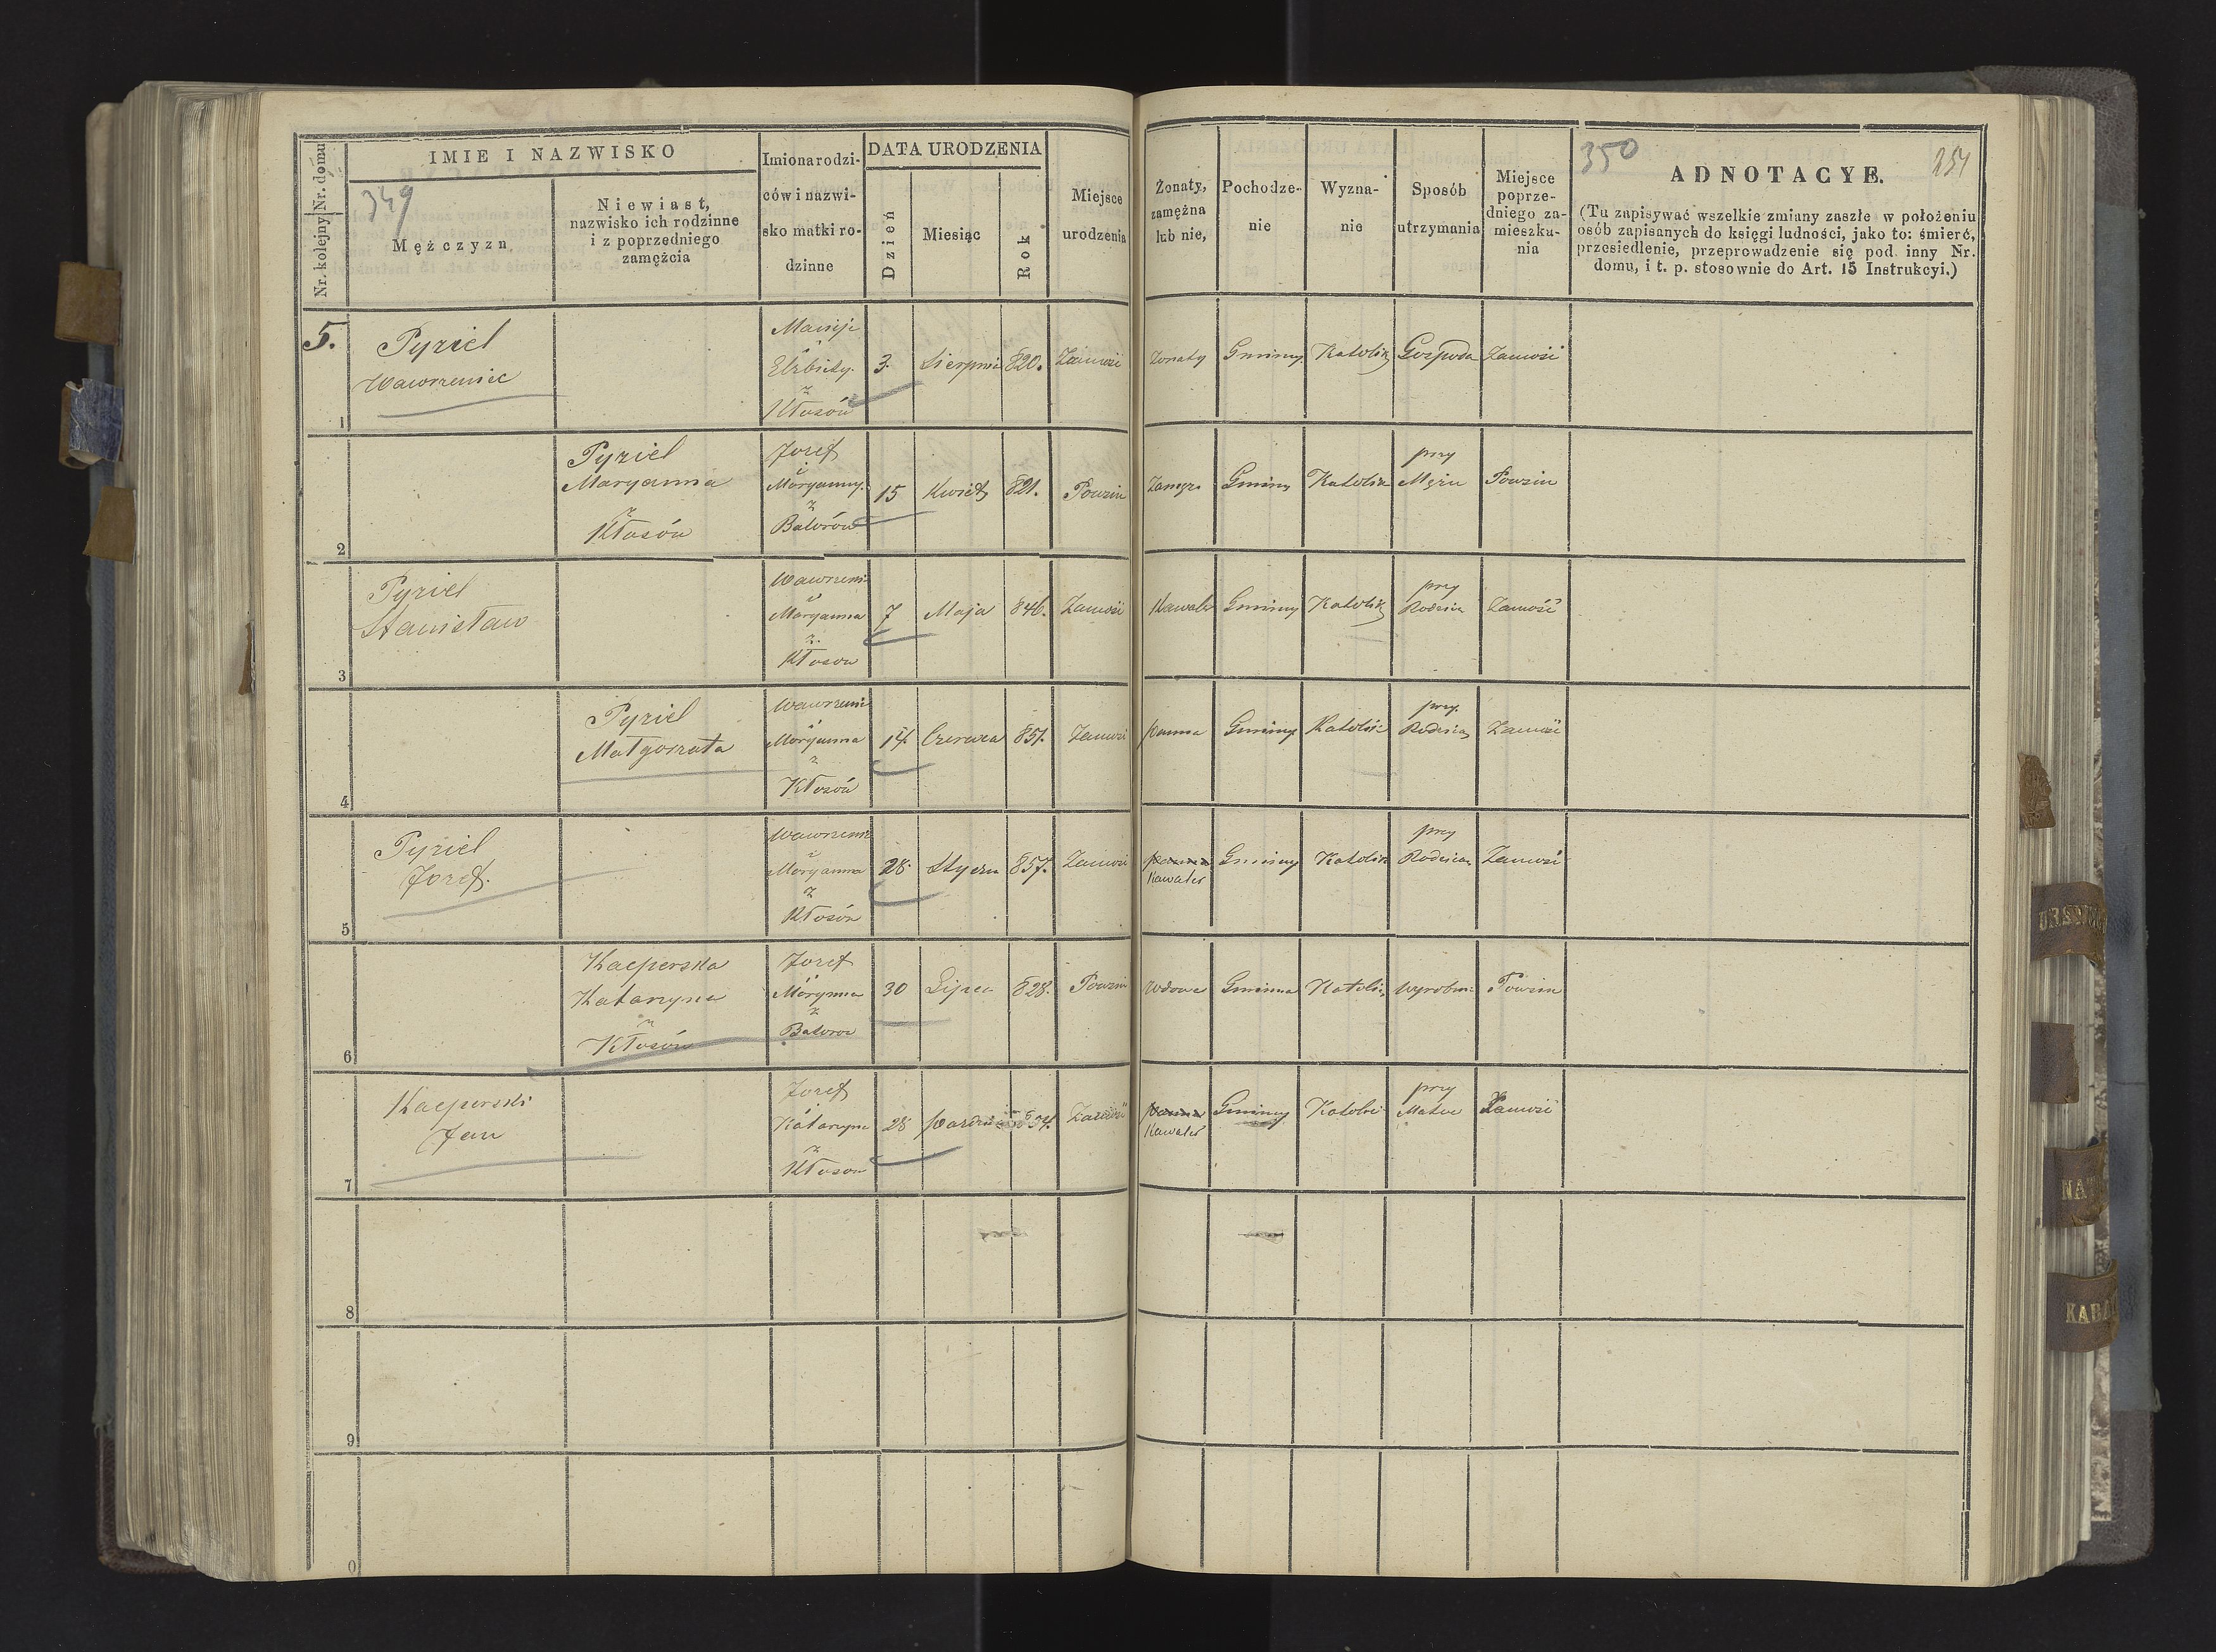 Nr. kolejny Nr. domu
IMIE I NAZWISKO
349
Mężczyzn
Niewiast,
nazwisko ich rodzinne
i z poprzedniego
zamęźcia
Imiona rodzi-
ców i nazwi-
sko matki ro-
dzinne
DATA URODZENIA
Dzień
Miesiąc
Rok
Miejsce
urodzenia
Żonaty,
zamężna
lub nie,
Pochodze-
nie
Wyzna-
nie
Sposób
utrzymania
Miejsce
poprze-
dniego za-
mieszka-
nia
350
254
ADNOTACYE.
(Tu zapisywać wszelkie zmiany zaszłe w położeniu
osób zapisanych do księgi ludności, jako to: śmierć,
przesiedlenie, przeprowadzenie się pod inny Nr.
domu, i t. p. stosownie do Art. 15 Instrukcyi.)
5.
1
Pyziel
Wawrzeniec
Maciej
i
Elzbiety
z
Kłosów
3. Sierpnia 820. Zamość
Zonaty Gminny Katolik Gospoda Zamość
2
Pyziel
Maryanna
z
Kłosów
Jozef
i
Maryanny
z
Batorów
15 Kwiet 821. Powzin
Zamęz. Gminny Katolik
przy
Mężu
Powzin
3
Pyziel
Stanisław
Wawrzeni
i
Maryanna
z
Kłosow
7 Maja 846. Zamość
Kawaler Gminny Katolik
przy
Rodzica
Zamość
4
Pyziel
Małgorzata
Wawrzeni
i
Maryanna
z
Kłosów
14 Czerwca 851. Zamość
panna Gminny Katolic
przy
Rodzica
Zamość
5
Pyziel
Jozef.
Wawrzeni
i
Maryanna
z
Kłosów
28 Stycz 857. Zamość
panna
Kawaler
Gminny Katolik
przy
Rodzica
Zamość
6
Kacperska
Katarzyna
z
Kłosów
Jozef
i
Maryanna
z
Batorow
30 Lipca 828. Powzin
Wdowa Gminna Katolic Wyrobn. Powzin
7
Kacperski
Jan
Jozef
i
Katarzyna
z
Kłosow
28 pazdzi
panna
Kawaler
Gminny Katolic
przy
Matce
Zamość
8
9
0
NA
KABA